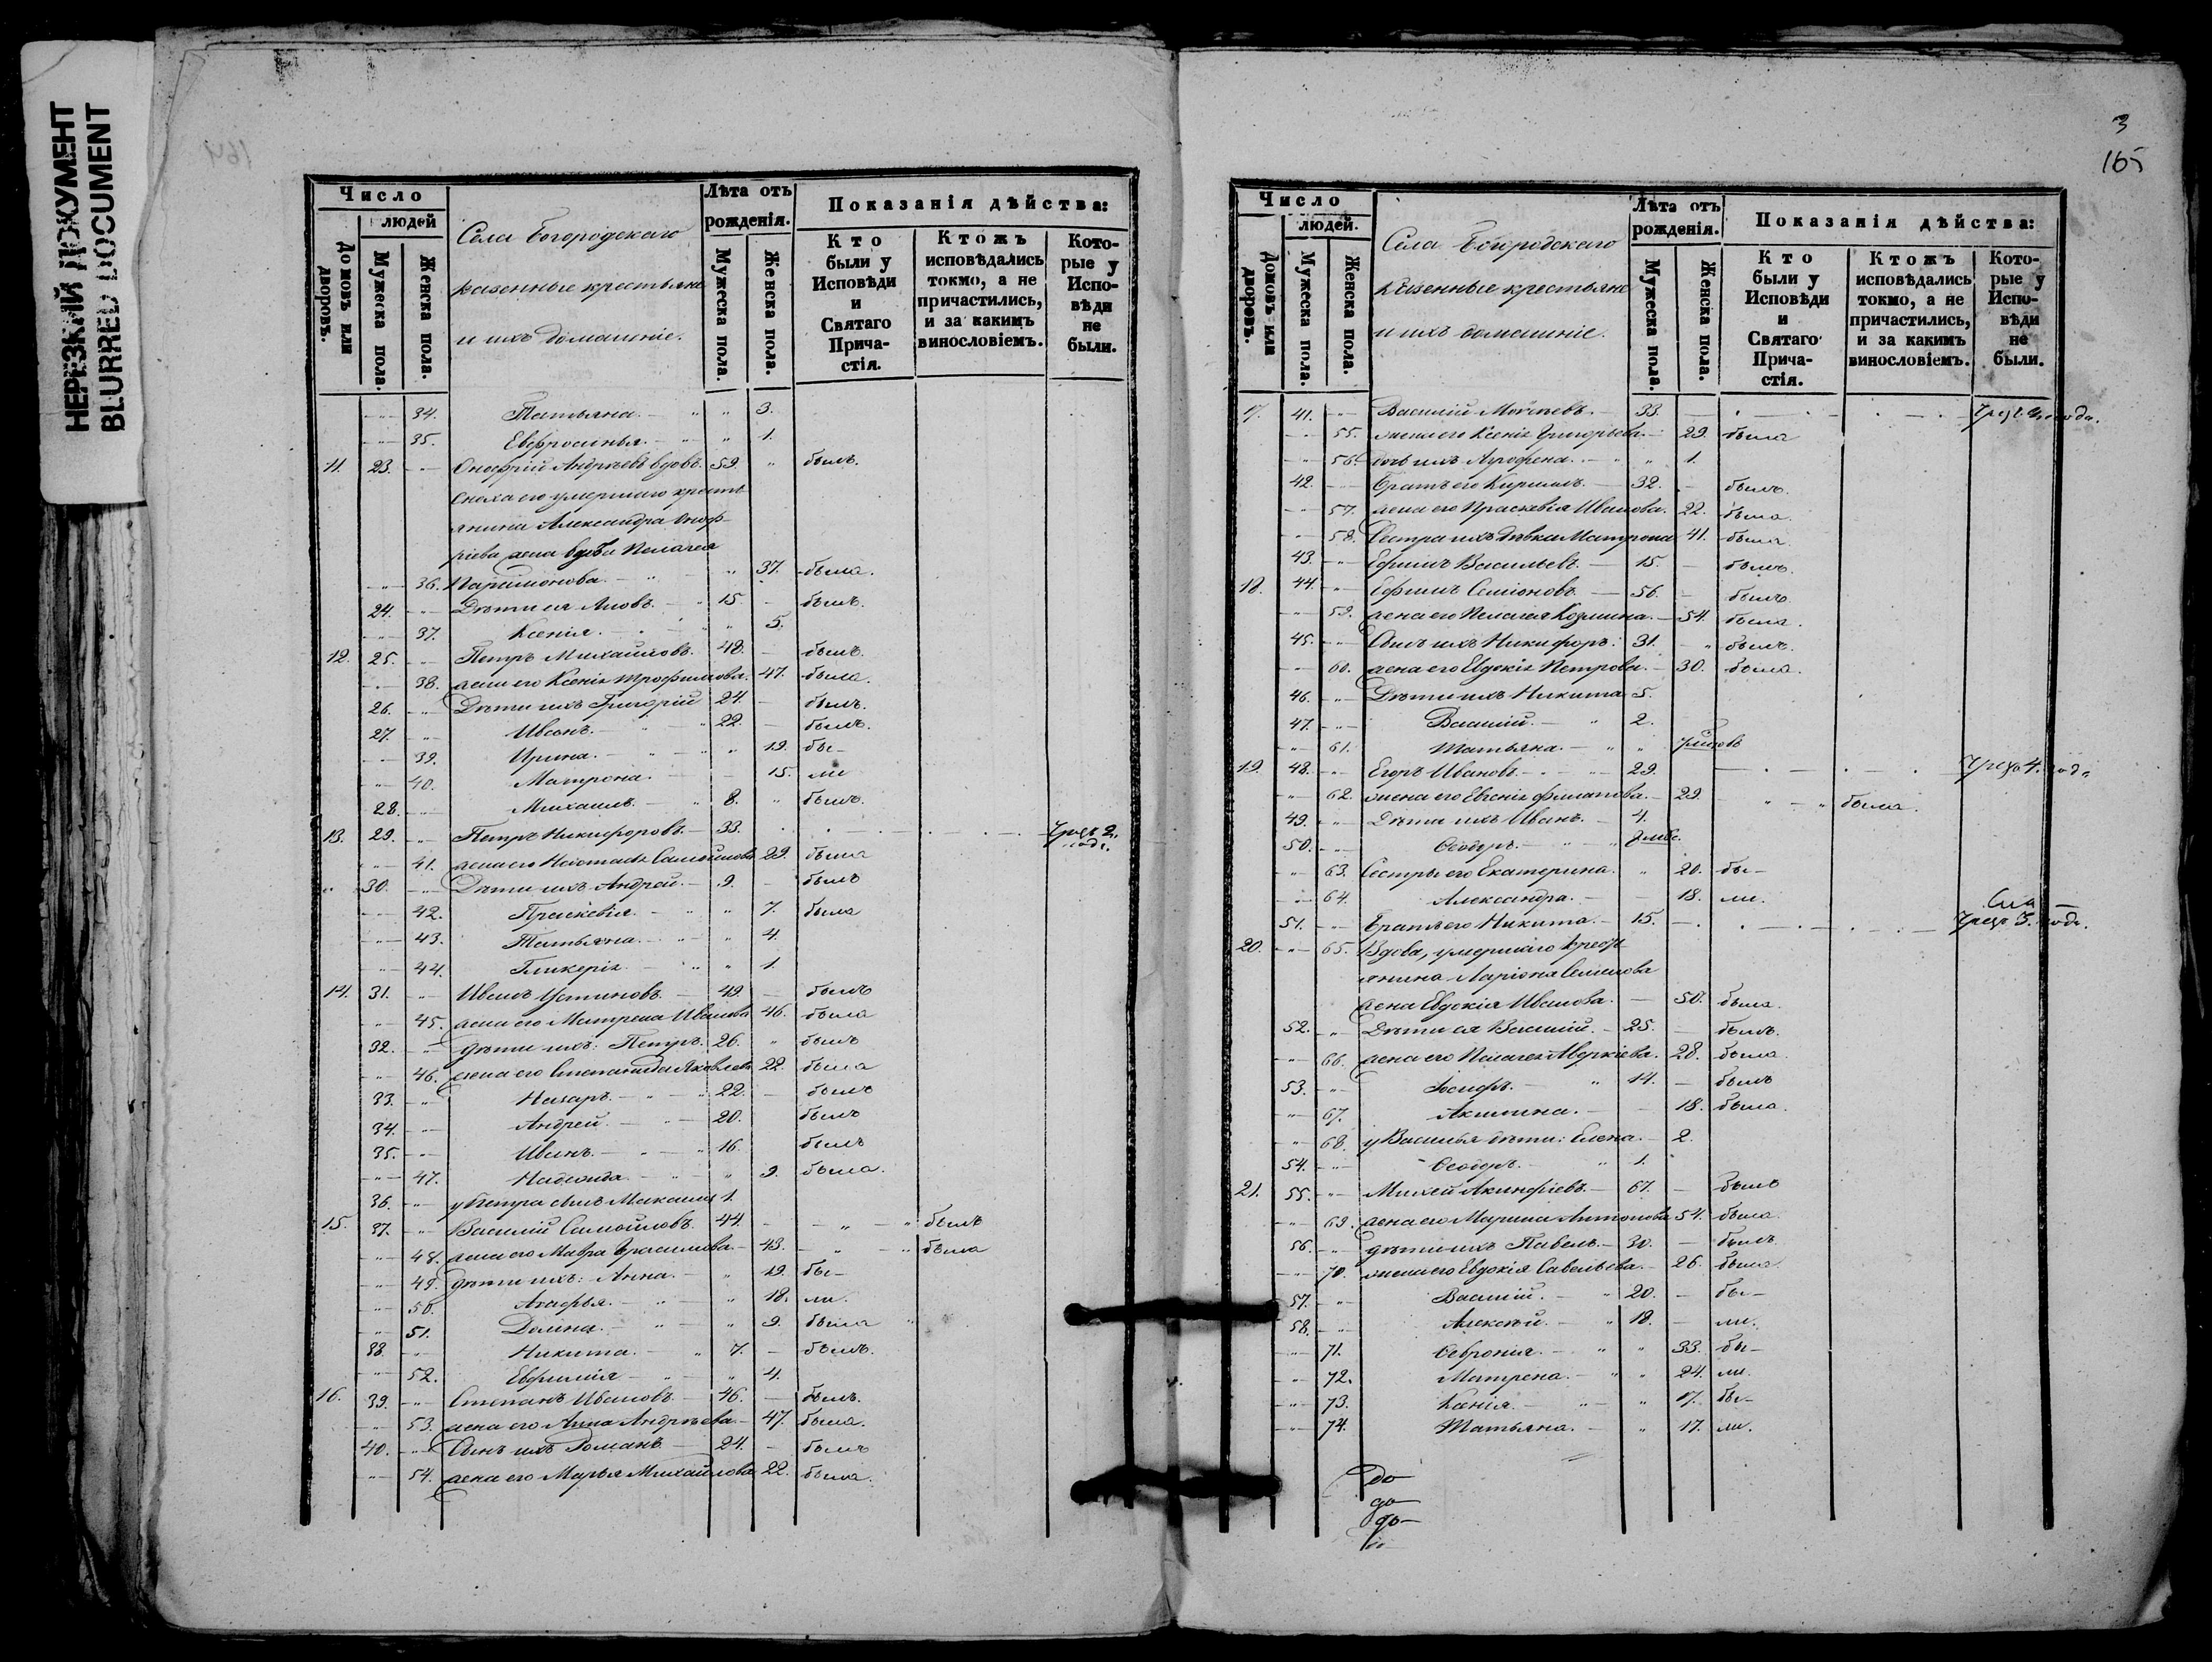 НЕРЕЗКИЙ ДОКУМЕНТ
BLURRED DOCUMENT
164
Число
людей
Домовъ или дворовъ.
Мужеска пола.
Женска пола.
Села Богородскаго
казенные крестьяне
и ихъ домашніе.
Лѣта отъ рожденія.
Мужеска пола.
Женска пола.
Показанія дѣйства:
Кто были у Исповѣди и Святаго Прича-стія.
Ктожъ исповѣдались токмо, а не причастились, и за какимъ винословіемъ.
Кото-рые у Испо-вѣди не были.
34. Татьяна. 3.
35. Евфросинья. 1.
11. 23. Онофрій Андрѣевъ вдовъ. 59. былъ.
Сноха его умершаго кресть
янина Александра Оноф-
ріева жена вдова Пелагея
36. Парамонова. 37. была.
24. Дѣти ея Іовъ. 15. былъ.
37. Ксенія. 5.
12. 25. Петръ Михайловъ. 48. былъ.
38. жена его Ксенія Трофимова. 47. была.
26. Дѣти ихъ Григорій 24. былъ.
27. Иванъ. 22. былъ.
39. Ирина. 19. бы-
40. Матрона. 15. ли
28. Михаилъ. 8. былъ.
13. 29. Петръ Никифоровъ. 33. Чрезъ 2. года.
41. жена его Настасья Самойлова 29. была
30. Дѣти ихъ Андрей. 9. былъ
42. Праскевія. 7. была
43. Татьяна. 4.
44. Гликерія. 1.
14. 31. Иванъ Устиновъ. 49. былъ
45. жена его Матрена Иванова 46. была
32. дѣти ихъ: Петръ. 26. былъ
46. жена его Степанида Яковлева 22. была
33. Назаръ. 22. былъ
34. Андрей. 20. былъ
35. Иванъ. 16. былъ
47. Надежда. 9. была.
36. у Петра сынъ Михаилъ 1.
15. 37. Василій Самойловъ. 44. былъ
48. жена его Мавра Герасимова. 43. была
49. дѣти ихъ: Анна. 19. бы-
50. Агафья. 18. ли.
51. Домна. 9. была
38. Никита. 7. былъ.
52. Евфимія 4.
16. 39. Степанъ Ивановъ. 46. былъ.
53. жена его Анна Андрѣева. 47. была.
40. Сынъ ихъ Романъ 24. былъ
54. жена его Марья Михайлова 22. была.
3
165
Число
людей.
Домовъ или дворовъ.
Мужеска пола.
Женска пола.
Села Богородскаго
казенные крестьяне
и ихъ домашніе.
Лѣта отъ рожденія.
Мужеска пола.
Женска пола.
Показанія дѣйства:
Кто были у Исповѣди и Святаго Прича-стія.
Ктожъ исповѣдались токмо, а не причастились, и за какимъ винословіемъ.
Кото-рые у Испо-вѣди не были.
17. 41. Василій Моѵсѣевъ. 33. года.
55. жена его Ксенія Григорьева. 29. была
56. дочь ихъ Агрофена. 1.
42. Братъ его Кирилъ. 32. былъ.
57. жена его Праскевія Иванова. 22. была.
58. Сестра ихъ дѣвка Матрона 41. была.
43. Ефимъ Васильевъ. 15. былъ.
18. 44. Ефимъ Семіоновъ. 56. былъ.
59. жена его Пелагея Козмина. 54. была.
45. Сынъ ихъ Никифоръ: 31. былъ.
60. жена его Евдокія Петрова. 30. была.
46. Дѣти ихъ Никита 5.
47. Василій. 2.
61. Татьяна.
19. 48. Егоръ Ивановъ. 29. Чрезъ 4. года
62. жена его Евгенія Филатова. 29. была.
49. Дѣти ихъ Иванъ. 4.
50. Ѳеодоръ.
63. Сестры его Екатерина. 20. бы-
64. Александра. 18. ли.
51. Братъ его Никита. 15. Чрезъ 3. года.
20. 65. Вдова, умершаго крест-
янина Ларіона Семенова
жена Евдокія Иванова. 50. была.
52. Дѣти ея Василій. 25. былъ.
66. жена его Пелагея Аверкіева. 28. была.
53. Іосифъ. 14. былъ
67. Акилина. 18. была.
68. у Василья дѣти: Елена. 2.
54. Ѳеодоръ. 1.
21. 55. Михей Акинфіевъ. 67. былъ
69. жена его Марина Антонова 54. была.
56. дѣти ихъ Павелъ. 30. былъ
70. жена его Евдокія Савельева. 26. была
57. Василій. 20. бы-
58. Алексѣй. 18. ли.
71. Ѳевронія. 33. бы-
72. Матрена. 24. ли.
73. Ксенія. 17. бы-
74. Татьяна. 17. ли.
До
до
до-